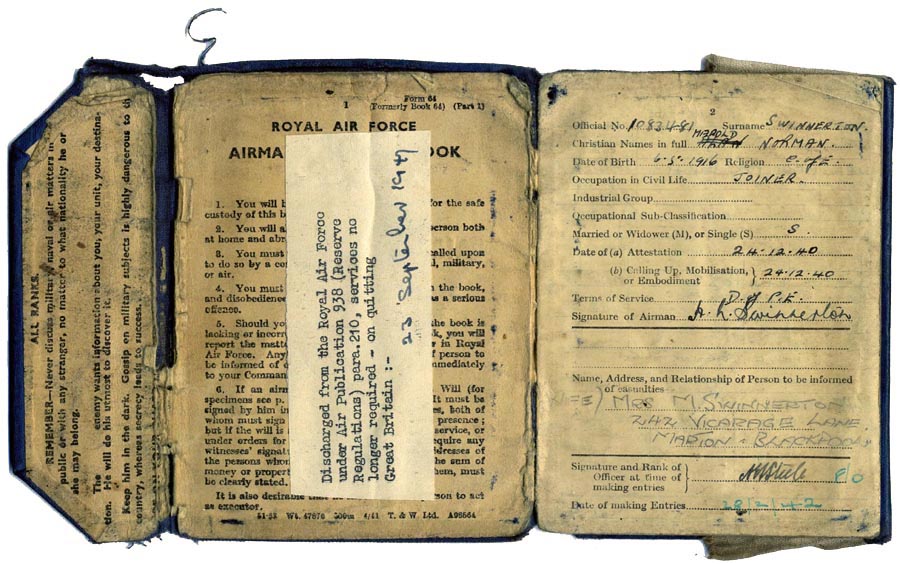 ALL RANKS.
REMEMBER—Never discuss military, naval or air matters in
public or with any stranger, no matter to what nationality he or
she may belong.
The enemy wants information about you, your unit, your destina-
tion. He will do his utmost to discover it.
Keep him in the dark. Gossip on military subjects is highly dangerous to th
country, whereas secrecy leads to success.
1
Form 64
(Formerly Book 64) (Part 1)
ROYAL AIR FORCE
AIRMA OOK
1. You will b for the safe
custody of this b
2. You will a erson both
at home and abr
3. You must called upon
to do so by a co l, military,
or air.
4. You must the book,
and disobedience as a serious
offence.
5. Should yo he book is
lacking or incorr k, you will
report the matte y in Royal
Air Force. Any f person to
be informed of mmediately
to your Comman
6. If an airm Will (for
specimens see p. It must be
signed by him in es, both of
whom must sign presence ;
but if the will is service, or
under orders for equire any
witnesses' signat dresses of
the persons whom he sum of
money or propert hem, must
be clearly stated.
It is also desirable th son to act
as executor.
51-53 Wt. 47676 500m 4/41 T. & W. Ltd. A98664
Discharged from the Royal Air Force
under Air Publication 938 (Reserve
Regulations) para.210, services no
longer required - on quitting
Great Britain :-
23 September 1947
2
Official No. 1083481 Surname SWINNERTON
HAROLD
Christian Names in full NORMAN.
Date of Birth 6·5·1916 Religion C. of E
Occupation in Civil Life JOINER.
Industrial Group
Occupational Sub-Classification
Married or Widower (M), or Single (S) S.
Date of (a) Attestation 24-12-40
(b) Calling Up, Mobilisation,
or Embodiment } 24-12-40
Terms of Service D of P.E.
Signature of Airman Swinnerton
Name, Address, and Relationship of Person to be informed
of casualties
MRS M. SWINNERTO
242 VICARAGE LANE
MARTON - BLACKPOOL
Signature and Rank of
Officer at time of
making entries } P/O
Date of making Entries 28/2/42